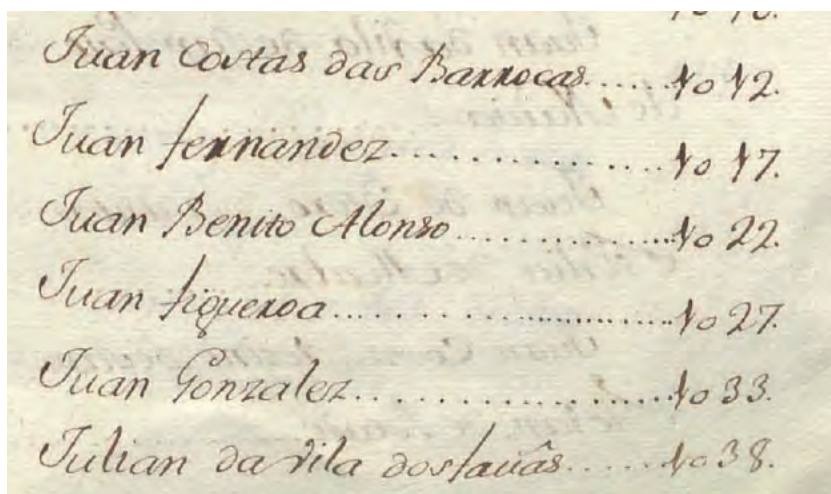 Juan Costas das Barrocas..... 1012.
Juan fernandez.............. 1017.
Juan Benito Alonso............ 1022.
Juan figueroa.................... 1027.
Juan Gonzalez.................. 1033.
Julian da vila dos..... 1038.